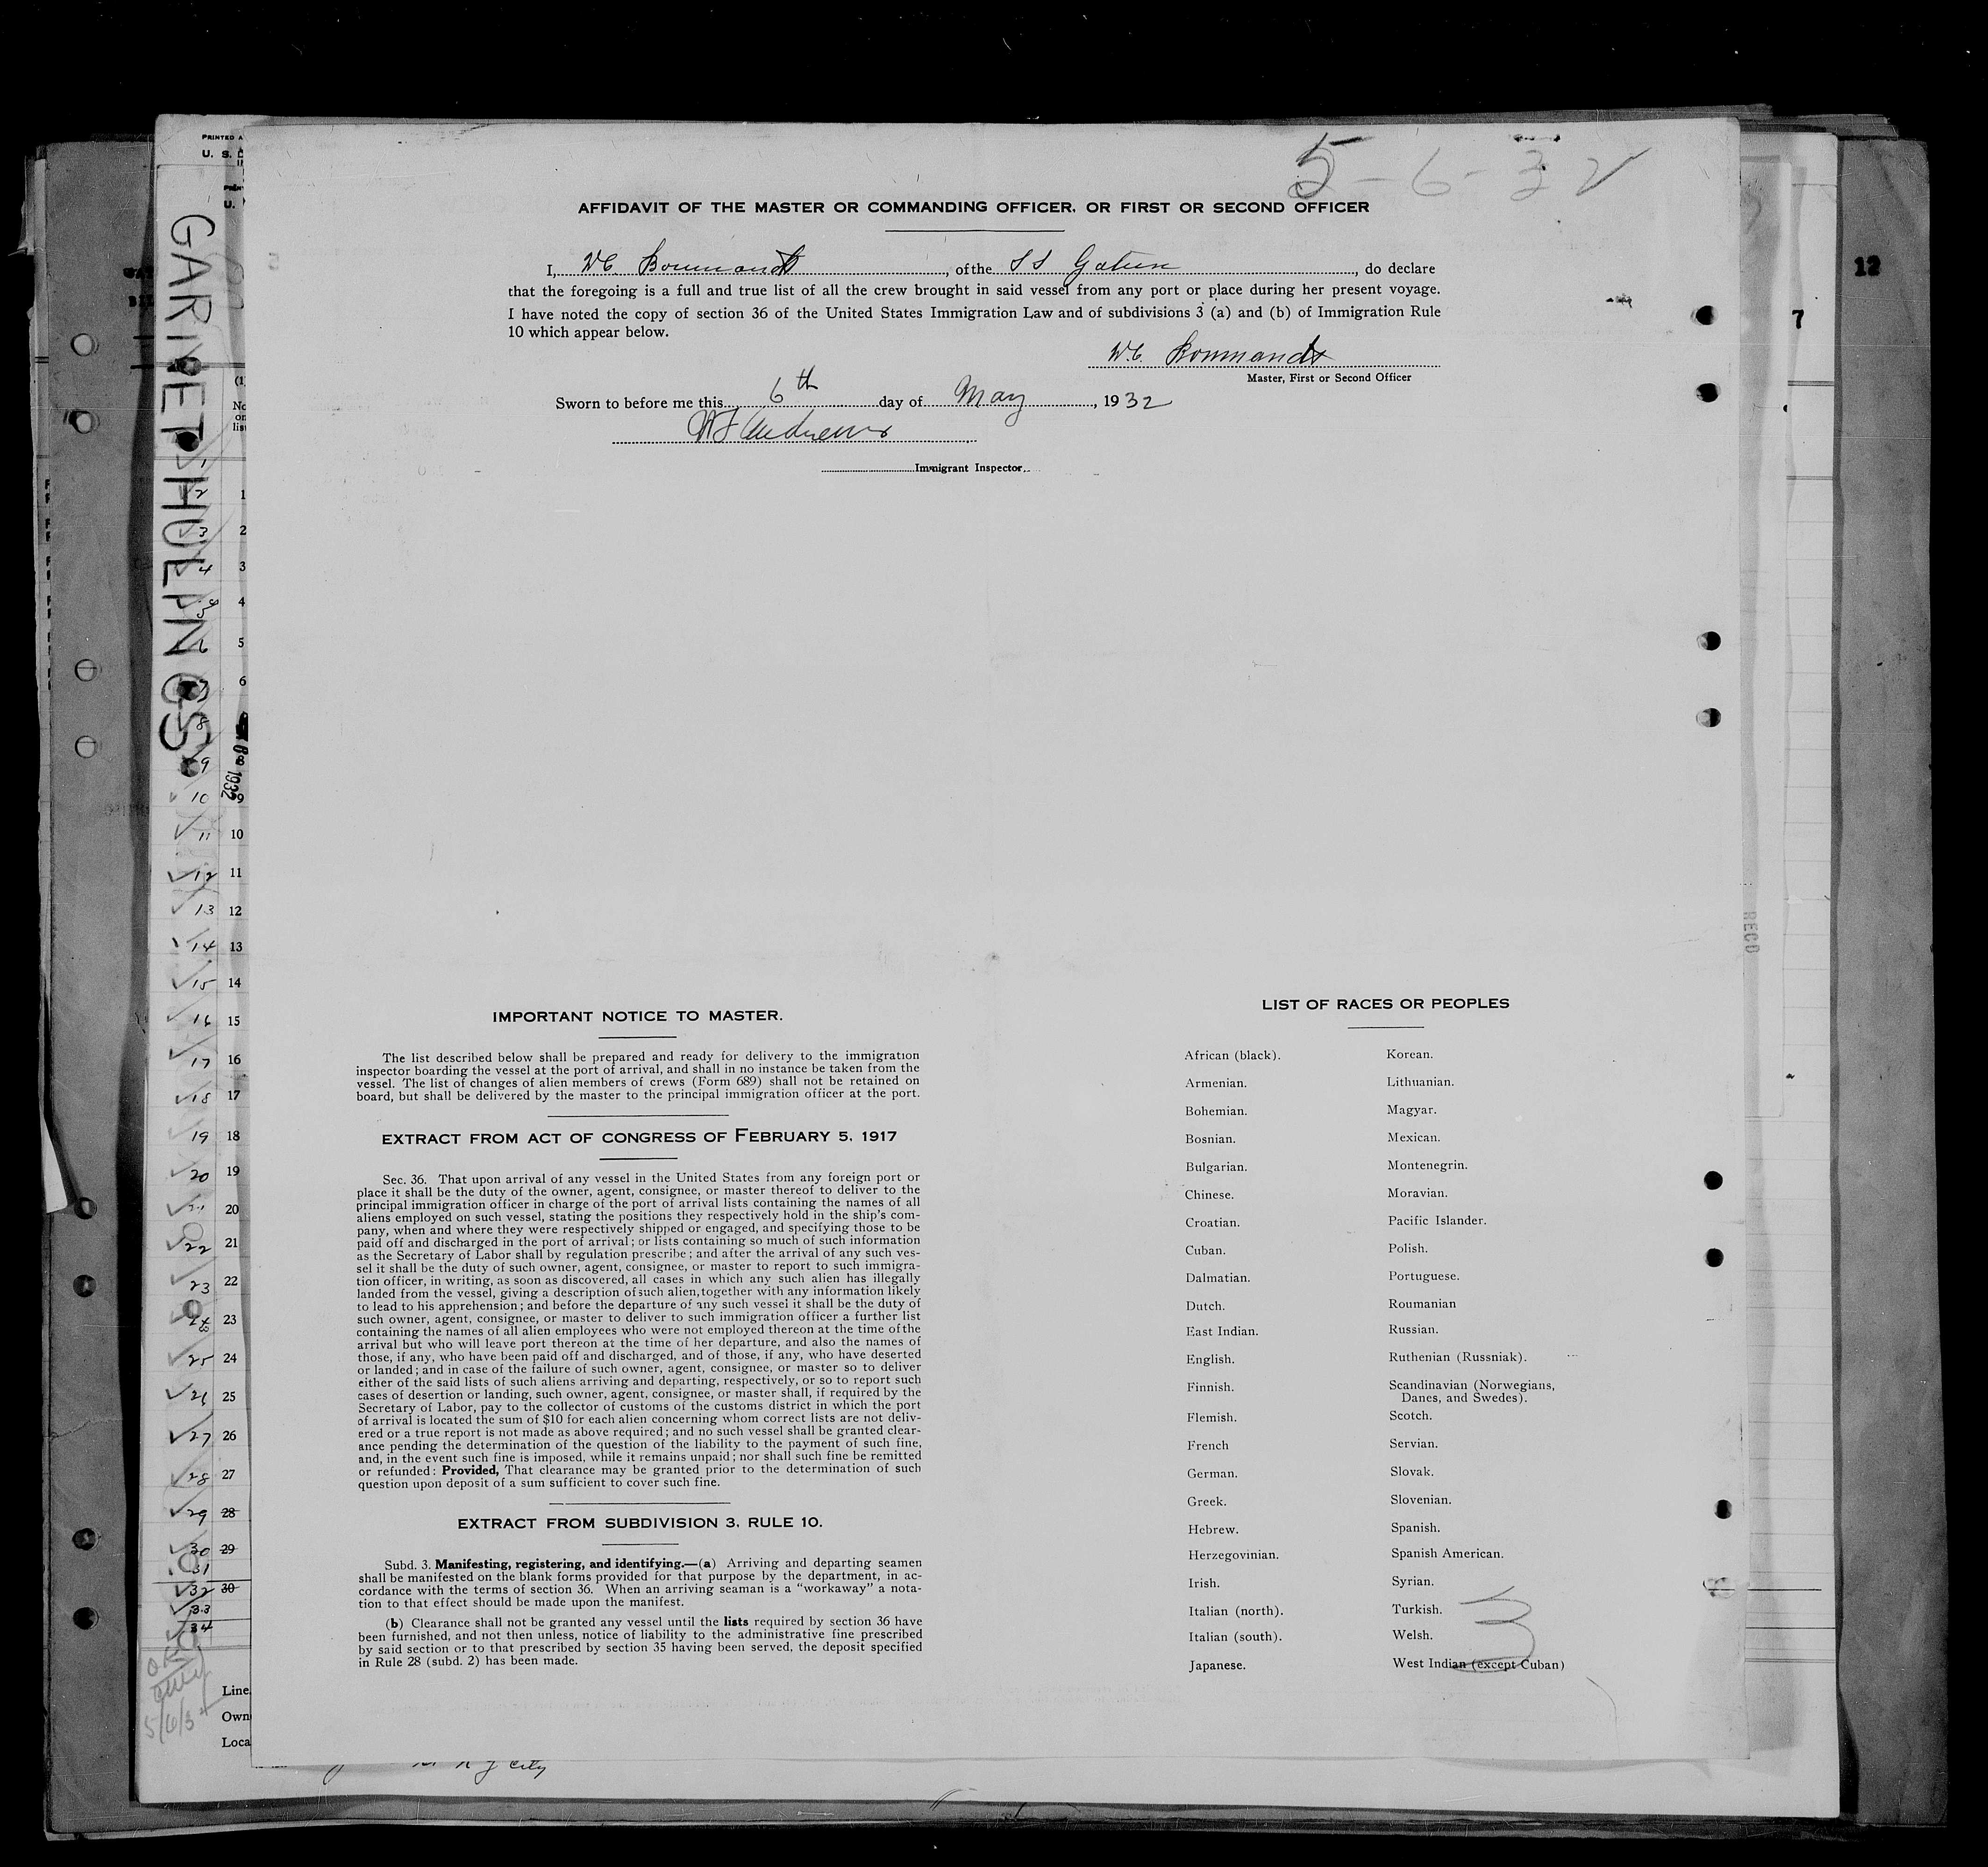 5-6-32
AFFIDAVIT OF THE MASTER OR COMMANDING OFFICER, OR FIRST OR SECOND OFFICER
I, W C , of the S S Gatun , do declare
that the foregoing is a full and true list of all the crew brought in said vessel from any port or place during her present voyage.
I have noted the copy of section 36 of the United States Immigration Law and of subdivisions 3 (a) and (b) of Immigration Rule
10 which appear below.
W.C.
Master, First or Second Officer
Sworn to before me this 6th day of May, 1932
Andrews
Immigrant Inspector.
IMPORTANT NOTICE TO MASTER.
The list described below shall be prepared and ready for delivery to the immigration
inspector boarding the vessel at the port of arrival, and shall in no instance be taken from the
vessel. The list of changes of alien members of crews (Form 689) shall not be retained on
board, but shall be delivered by the master to the principal immigration officer at the port.
EXTRACT FROM ACT OF CONGRESS OF FEBRUARY 5, 1917
Sec. 36. That upon arrival of any vessel in the United States from any foreign port or
place it shall be the duty of the owner, agent, consignee, or master thereof to deliver to the
principal immigration officer in charge of the port of arrival lists containing the names of all
aliens employed on such vessel, stating the positions they respectively hold in the ship's com-
pany, when and where they were respectively shipped or engaged, and specifying those to be
paid off and discharged in the port of arrival; or lists containing so much of such information
as the Secretary of Labor shall by regulation prescribe; and after the arrival of any such ves-
sel it shall be the duty of such owner, agent, consignee, or master to report to such immigra-
tion officer, in writing, as soon as discovered, all cases in which any such alien has illegally
landed from the vessel, giving a description of such alien, together with any information likely
to lead to his apprehension; and before the departure of any such vessel it shall be the duty of
such owner, agent, consignee, or master to deliver to such immigration officer a further list
containing the names of all alien employees who were not employed thereon at the time of the
arrival but who will leave port thereon at the time of her departure, and also the names of
those, if any, who have been paid off and discharged, and of those, if any, who have deserted
or landed; and in case of the failure of such owner, agent, consignee, or master so to deliver
either of the said lists of such aliens arriving and departing, respectively, or so to report such
cases of desertion or landing, such owner, agent, consignee, or master shall, if required by the
Secretary of Labor, pay to the collector of customs of the customs district in which the port
of arrival is located the sum of $10 for each alien concerning whom correct lists are not deliv-
ered or a true report is not made as above required; and no such vessel shall be granted clear-
ance pending the determination of the question of the liability to the payment of such fine,
and, in the event such fine is imposed, while it remains unpaid; nor shall such fine be remitted
or refunded: Provided, That clearance may be granted prior to the determination of such
question upon deposit of a sum sufficient to cover such fine.
EXTRACT FROM SUBDIVISION 3, RULE 10.
Subd. 3. Manifesting, registering, and identifying.—(a) Arriving and departing seamen
shall be manifested on the blank forms provided for that purpose by the department, in ac-
cordance with the terms of section 36. When an arriving seaman is a "workaway" a nota-
tion to that effect should be made upon the manifest.
(b) Clearance shall not be granted any vessel until the lists required by section 36 have
been furnished, and not then unless, notice of liability to the administrative fine prescribed
by said section or to that prescribed by section 35 having been served, the deposit specified
in Rule 28 (subd. 2) has been made.
LIST OF RACES OR PEOPLES
African (black).
Armenian.
Bohemian.
Bosnian.
Bulgarian.
Chinese.
Croatian.
Cuban.
Dalmatian.
Dutch.
East Indian.
English.
Finnish.
Flemish.
French
German.
Greek.
Hebrew.
Herzegovinian.
Irish.
Italian (north).
Italian (south).
Japanese.
Korean.
Lithuanian.
Magyar.
Mexican.
Montenegrin.
Moravian.
Pacific Islander.
Polish.
Portuguese.
Roumanian
Russian.
Ruthenian (Russniak).
Scandinavian (Norwegians,
Danes, and Swedes).
Scotch.
Servian.
Slovak.
Slovenian.
Spanish.
Spanish American.
Syrian.
Turkish.
Welsh.
West Indian (except Cuban)
3
GARNET HULINGS
12
7
RECD
Line
Own
Loca
N Y City